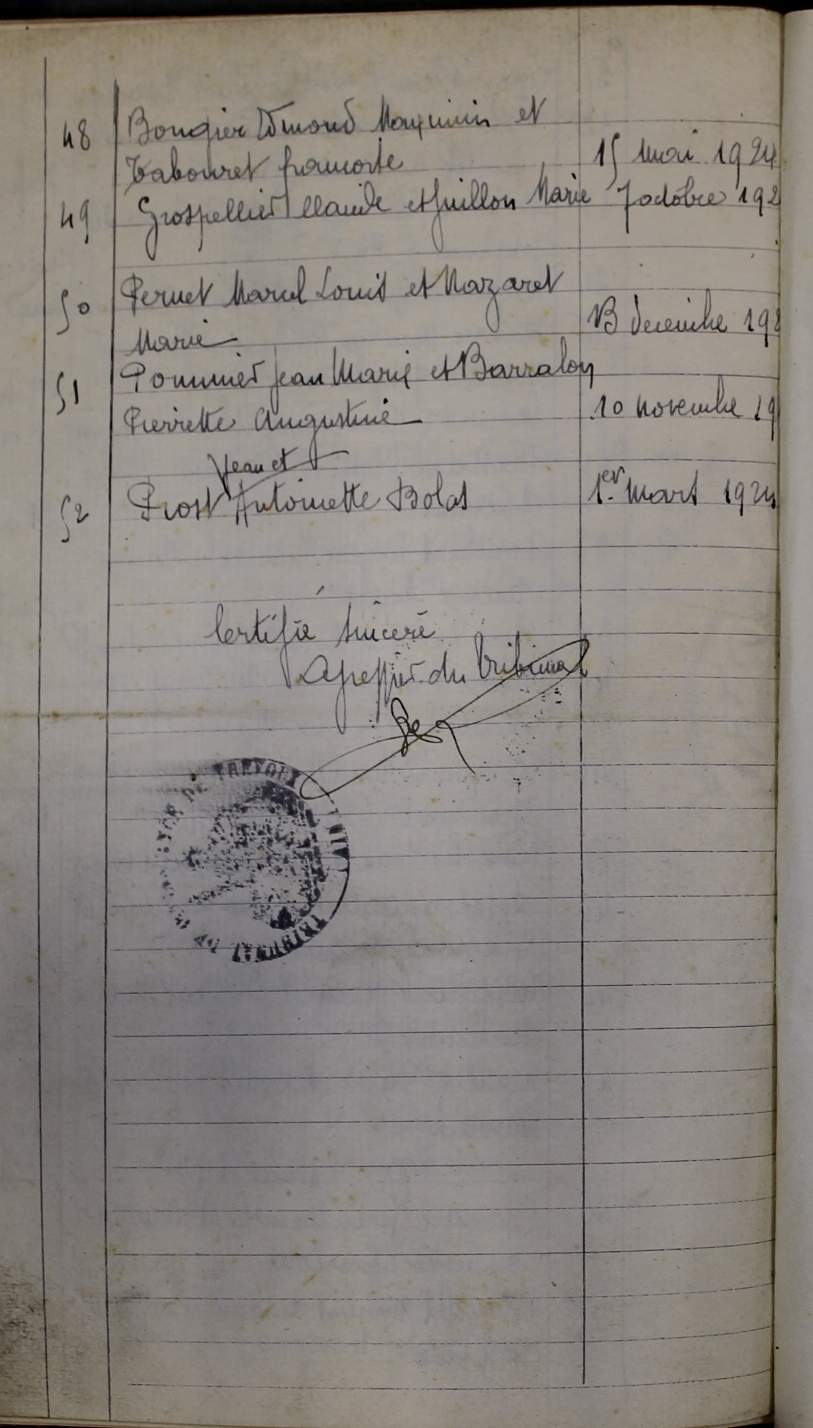 48 Bougier Edmond Maximin et
Tabouret francoise 15 mai 1924
49 Grospellier Claude et Guillon Marie 7 octobre 192
50 Pernet Marcel Louis et Nazaret
Marie 13 decembre 192
51 Pommier Jean Marie et Barralon
Pierrette Augustine 10 novembre 19
Jean et
52 Prost Antoinette Bolas 1er mars 1924
Certifié sincère
Le greffier du tribunal
TRIBUNAL